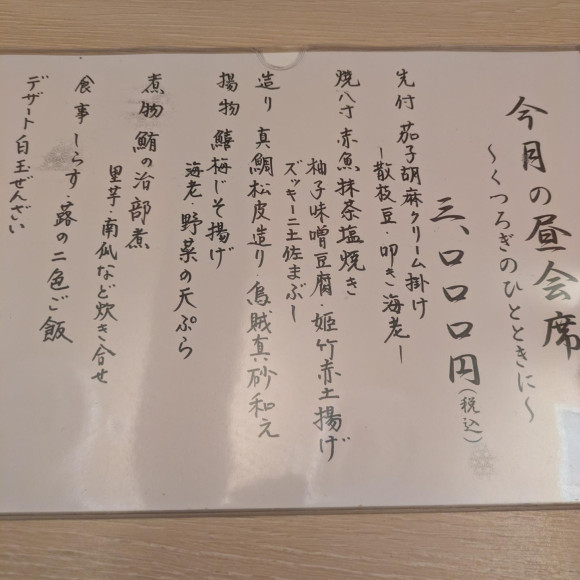 今月の昼会席
～くつろぎのひとときに～
三、000円(税込)
先付 茄子胡麻クリーム掛け
ー散枝豆・叩き海老ー
焼八寸 赤魚抹茶塩焼き
柚子味噌豆腐・姫竹赤土揚げ
ズッキーニ土佐まぶし
造り 真鯛松皮造り・烏賊真砂和え
揚物 鱚梅じそ揚げ
海老・野菜の天ぷら
煮物 鮪の治部煮
里芋・南瓜など炊き合せ
食事 しらす・蕗の二色ご飯
デザート 白玉ぜんざい